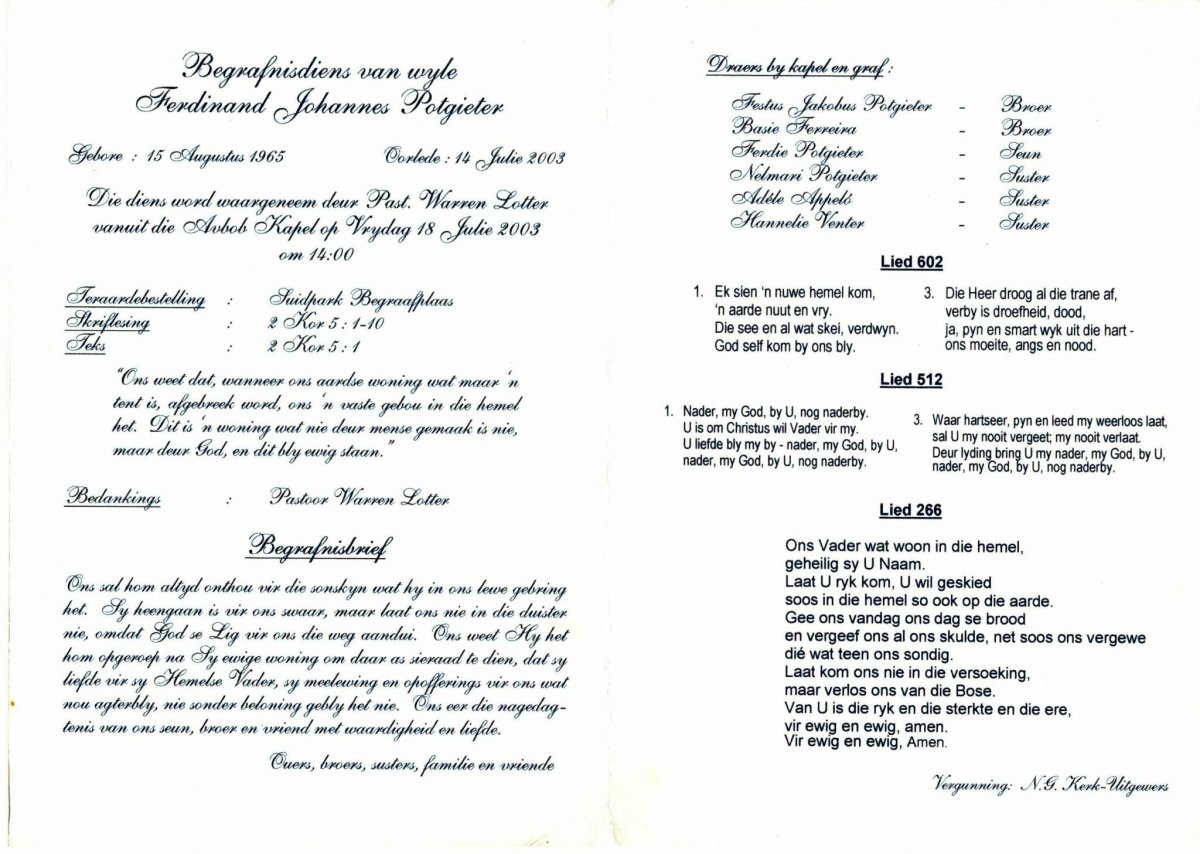 Begrafnisdiens van wyle
Ferdinand Johannes Potgieter
Gebore : 15 Augustus 1965 Oorlede : 14 Julie 2003
Die diens word waargeneem deur Past. Warren Lotter
vanuit die Avbob Kapel op Vrydag 18 Julie 2003
om 14:00
Teraardebestelling : Suidpark Begraafplaas
Skriflesing : 2 Kor 5 : 1-10
Teks : 2 Kor 5 : 1
"Ons weet dat, wanneer ons aardse woning wat maar 'n
tent is, afgebreek word, ons 'n vaste gebou in die hemel
het. Dit is 'n woning wat nie deur mense gemaak is nie,
maar deur God, en dit bly ewig staan."
Bedankings : Pastoor Warren Lotter
Begrafnisbrief
Ons sal hom altyd onthou vir die sonskyn wat hy in ons lewe gebring
het. Sy heengaan is vir ons swaar, maar laat ons nie in die duister
nie, omdat God se Lig vir ons die weg aandui. Ons weet Hy het
hom opgeroep na Sy ewige woning om daar as sieraad te dien, dat sy
liefde vir sy Hemelse Vader, sy meelewing en opofferings vir ons wat
nou agterbly, nie sonder beloning gebly het nie. Ons eer die nagedag-
tenis van ons seun, broer en vriend met waardigheid en liefde.
Ouers, broers, susters, familie en vriende
Draers by kapel en graf :
Festus Jakobus Potgieter - Broer
Basie Ferreira - Broer
Ferdie Potgieter - Seun
Nelmari Potgieter - Suster
Adèle Appeló - Suster
Hannelie Venter - Suster
Lied 602
1. Ek sien 'n nuwe hemel kom,
'n aarde nuut en vry.
Die see en al wat skei, verdwyn.
God self kom by ons bly.
3. Die Heer droog al die trane af,
verby is droefheid, dood,
ja, pyn en smart wyk uit die hart -
ons moeite, angs en nood.
Lied 512
1. Nader, my God, by U, nog naderby.
U is om Christus wil Vader vir my.
U liefde bly my by - nader, my God, by U,
nader, my God, by U, nog naderby.
3. Waar hartseer, pyn en leed my weerloos laat,
sal U my nooit vergeet; my nooit verlaat.
Deur lyding bring U my nader, my God, by U,
nader, my God, by U, nog naderby.
Lied 266
Ons Vader wat woon in die hemel,
geheilig sy U Naam.
Laat U ryk kom, U wil geskied
soos in die hemel so ook op die aarde.
Gee ons vandag ons dag se brood
en vergeef ons al ons skulde, net soos ons vergewe
dié wat teen ons sondig.
Laat kom ons nie in die versoeking,
maar verlos ons van die Bose.
Van U is die ryk en die sterkte en die ere,
vir ewig en ewig, amen.
Vir ewig en ewig, Amen.
Vergunning: N.G. Kerk-Uitgewers